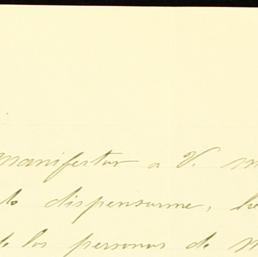 manifestar a V. m
dispensarme, he
de las personas de m